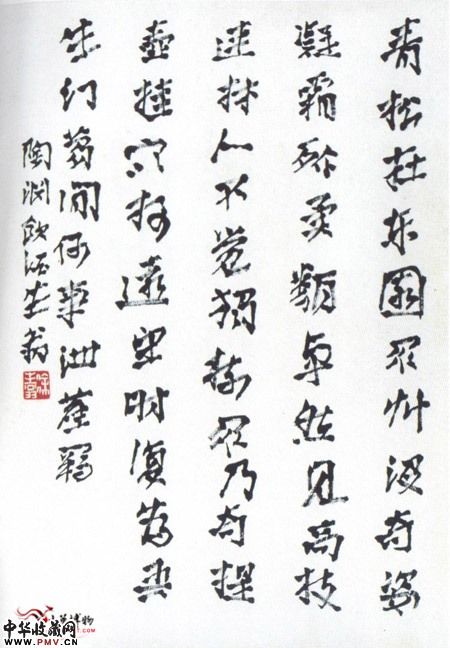 青松在东園眾艸没奇姿
凝霜殄異類卓然見高枝
連林人不覺獨樹眾乃奇提
壺挂寒柯遠望時復為吾
生幻夢間何事泄塵羈
陶淵飲酒生翁
中华收藏网
www.PMV.CN